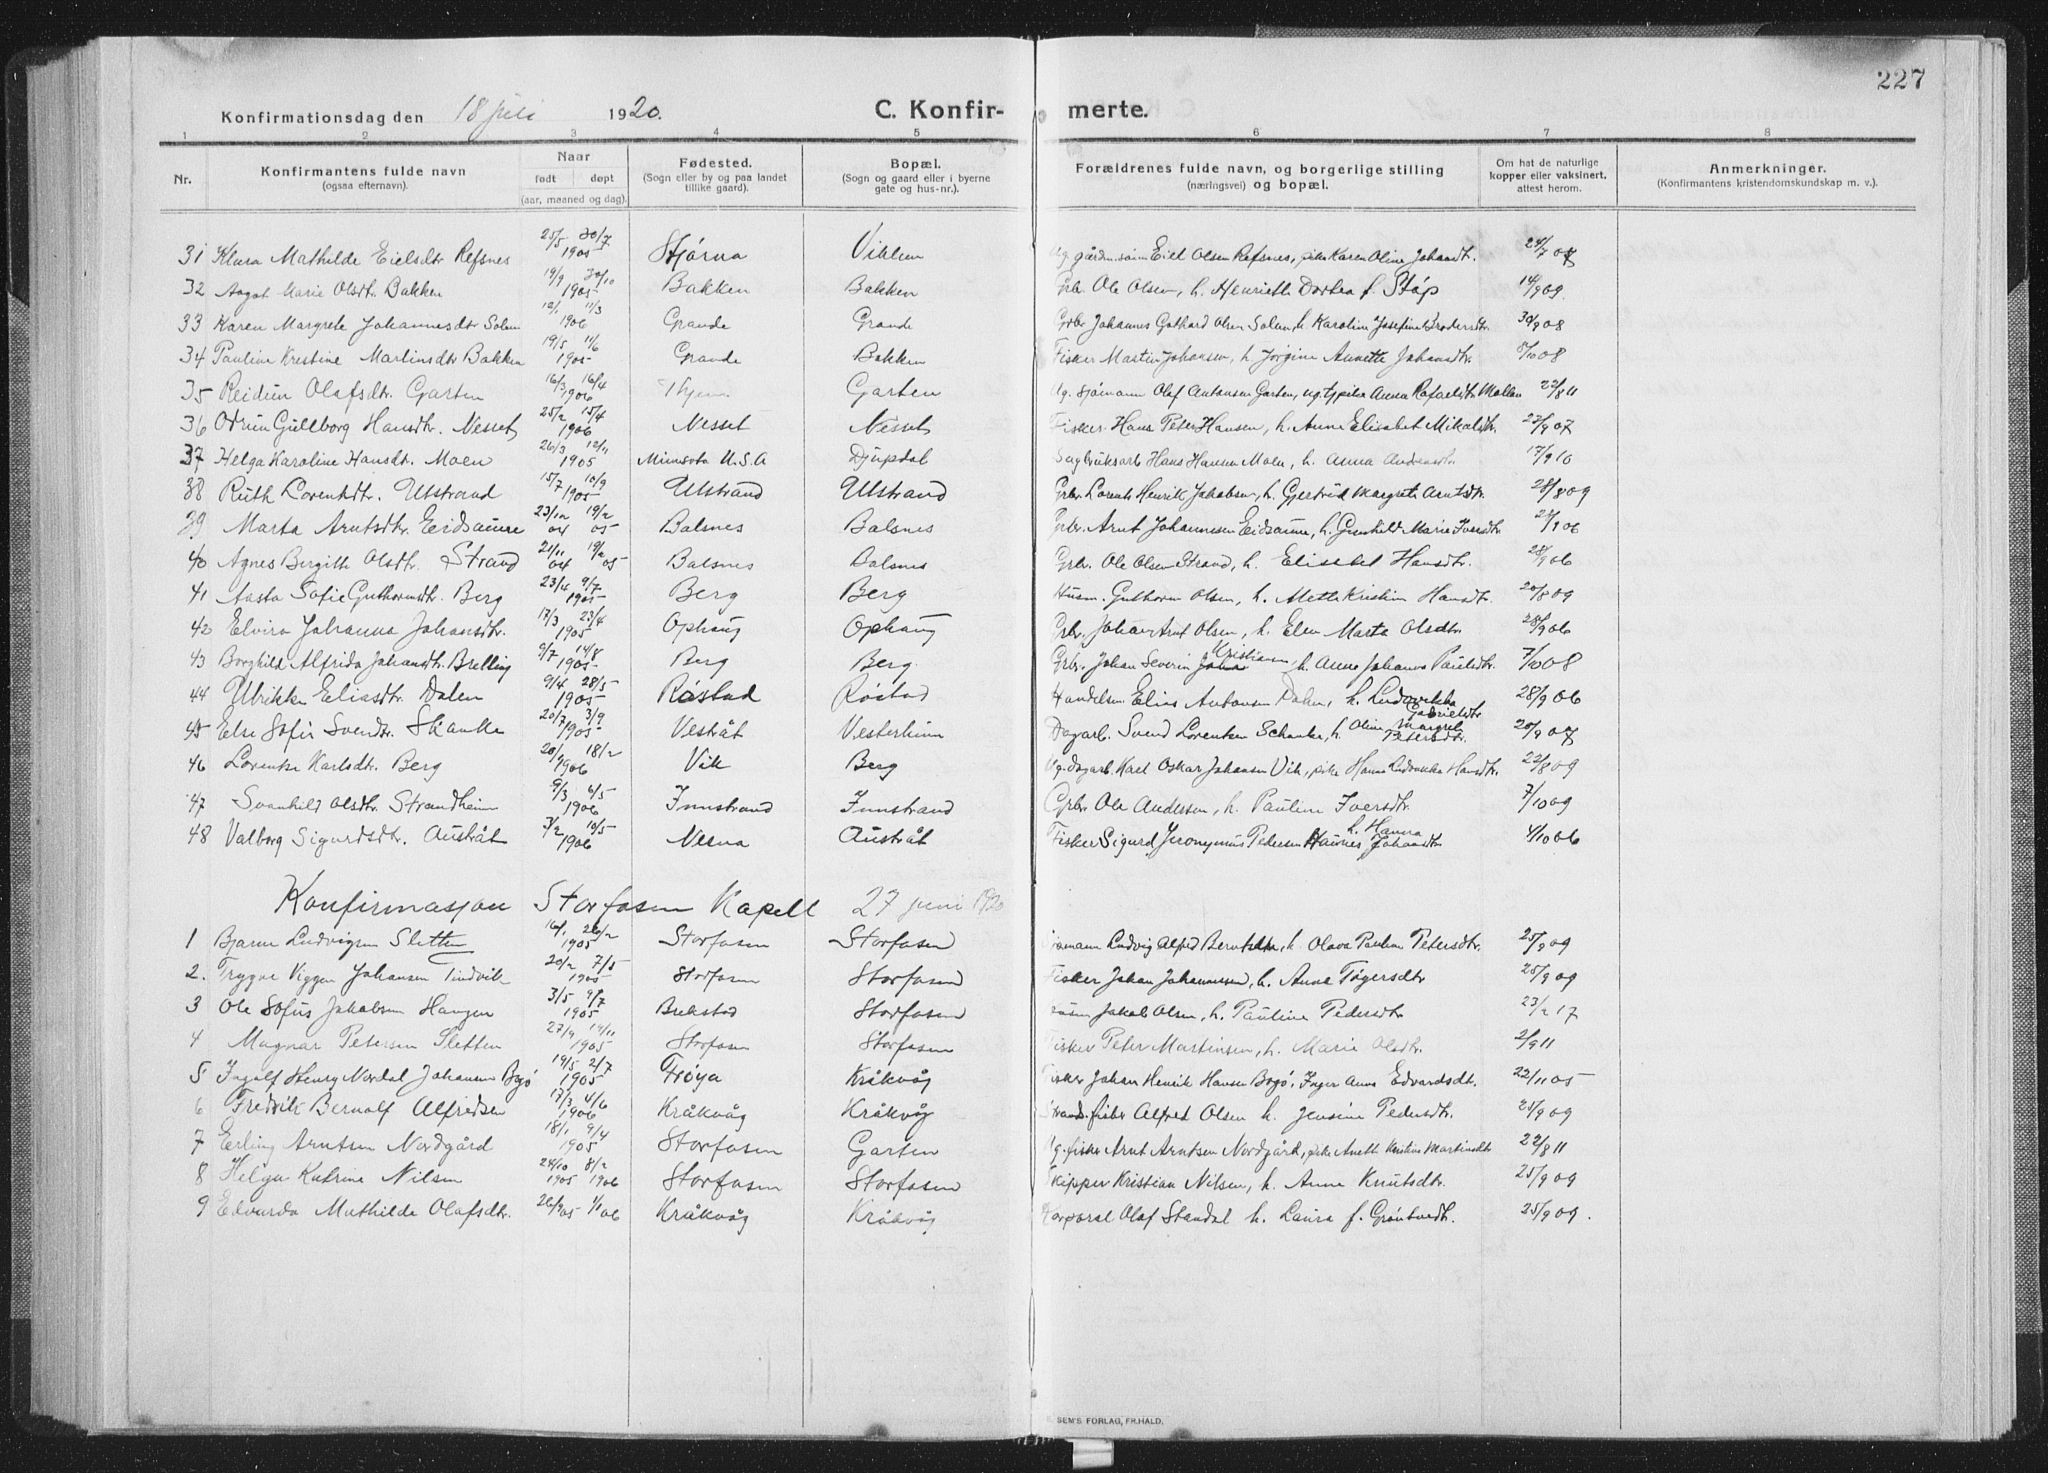 227
Konfirmationsdag den 18 juli 1920. C. Konfir- merte.
1 2 3 4 5 6 7 8
Nr. Konfirmantens fulde navn (ogsaa efternavn). Naar født døpt (aar, maaned og dag). Fødested. (Sogn eller by og paa landet tillike gaard). Bopæl. (Sogn og gaard eller i byerne gate og hus-nr.). Forældrenes fulde navn, og borgerlige stilling (næringsvei) og bopæl. Om hat de naturlige kopper eller vaksinert, attest herom. Anmerkninger. (Konfirmantens kristendomskundskap m. v.).
31 Klara Mathilde Eielsdtr Refsnes 25/5 20/7 1905 Stjørna Viklem Ug. gårdm.søn Eiel Olsen Refsnes, pike Karen Oline Johansdt. 24/7 07
32 Aagot Marie Olsdtr. Bakken 19/9 20/10 1905 Bakken Bakken Grb. Ole Olsen, h. Henriette Dortea f. Støp 14/9 09.
33 Karen Margrete Johannesdtr Solem 12/1 11/3 1906 Grande Grande Grbr Johannes Gothard Olsen Solem, h. Karoline Josefine Brodersdtr 30/9 08
34 Pauline Kristine Martinsdtr Bakken 19/5 11/6 1905 Grande Bakken Fisker Martin Johansen, h. Jørgine Annette Johansdtr. 8/10 08
35 Reidun Olafsdtr. Garten 16/3 16/4 1906 Garten Ug. Sjømann Olaf Antonsen Garten, ug. tj.pike Anna Rafaelsdtr Mollan 22/8 11
36 Odrun Gullborg Hansdtr. Nesset 25/2 15/4 1906 Nesset Nesset Fisker. Hans Peter Hansen, h. Anne Elisabet Mikalsdtr. 23/9 07
37 Helga Karoline Hansdt. Moen 26/3 12/11 1905 Minnsota U.S.A Djupdal Sagbruksarb Hans Hansen Moen, h. Anna Andersdtr. 17/9 10
38 Ruth Lorentsdtr. Ulstrand 15/7 10/9 1905 Ulstrand Ulstrand Grbr. Lorents Henrik Jakobsen, h. Gjertrud Margrete Arntsdtr. 28/8 09
39 Marta Arntsdtr. Eidsaune 23/12 04 19/2 05 Balsnes Balsnes Grbr. Arnt Johannessen Eidsaune, h. Gunhild Marie Iversdtr. 28/9 06
40 Agnes Bergitte Olsdtr. Strand 21/11 04 19/2 05 Balsnes Balsnes Grbr. Ole Olsen Strand, h. Elisabet Hansdtr. 28/9 06
41 Aasta Sofie Guthormsdtr. Berg 23/4 9/7 1905 Berg Berg Husm. Guthorm Olsen, h. Mette Kristine Hansdtr. 20/8 09
42 Elvira Johanna Johansdtr. 17/3 23/4 1905 Ophaug Ophaug Grbr. Johan Arnt Olsen, h. Elen Marta Olsdtr. 28/9 06
43 Borghild Alfrida Johansdtr. Brelling 9/7 14/8 1905 Berg Berg Grbr. Johan Severin Kristiansen, h. Anne Johanna Paulsdtr. 7/10 08
44 Ulrikke Eliasdtr. Dalen 9/4 28/5 1905 Røstad Røstad Handelsm. Elias Antonsen Dalen, h. Ludovikka Gabrielsdtr 28/9 06
45 Else Sofie Svendtr. Skanke 20/7 3/9 1905 Vestråt Vesterheim Dagarb. Svend Lorentsen Schanke, h. Oline Margrete Petersdtr. 20/9 07
46 Lorentse Karlsdt. Berg 20/1 18/2 1906 Vik Berg Ug. dagarb. Karl Oskar Johansen Vik, pike Hanna Ludovikka Hansdtr. 22/8 09
47 Svanhild Olsdtr. Strandheim 9/3 6/5 1906 Innstrand Innstrand Grbr. Ole Andersen, h. Pauline Iversdtr. 7/10 09
48 Valborg Sigurdsdtr. Austråt 7/2 10/5 1906 Nesna Austråt Fisker Sigurd Jeronymus Pedersen Haunes h. Hanna Johansdtr 4/10 06
Konfirmasjon Storfosen Kapell 27 juni 1920
1 Bjarne Ludvigsen Sletten 16/1 26/2 1905 Storfosen Storfosen Ludvig Alfred Berntsen, h. Olava Pauline Petersdtr. 25/9 09
2. Trygve Viggen Johansen Tindvik 20/2 7/5 1905 Storfosen Storfosen Fisker Johan Johannesen, h. Anna Tøgersdtr 25/9 09
3 Ole Sofus Jakobsen Haugen 3/5 9/7 1905 Brekstad Storfosen Jakob Olsen, h. Pauline Pedersdtr 23/2 17
4 Magnar Petersen Sletten 27/9 19/11 1905 Storfosen Storfosen Fisker Peter Martinsen, h. Marie Olsdtr. 2/9 11
5 Ingolf Henry Nordal Johansen Bogø 19/5 2/7 1905 Frøya Kråkvåg Fisker Johan Henrik Hansen Bogø, Inger Anna Edvardsdt. 22/11 05
6 Fredrik Bernolf Alfredsen 17/3 4/6 1906 Kråkvåg Kråkvåg Strandsfisker Alfred Olsen h. Jensine Pedersdtr. 25/9 09
7 Erling Arntsen Nordgård 18/1 9/4 1905 Storfosen Garten Ug. fisker Arnt Arntsen Nordgård, pike Anette Kristine Martinsdtr 22/8 11
8 Helga Katrine Nilsen 24/10 1905 8/2 1906 Storfosen Storfosen Skipper Kristian Nilsen, h. Anne Knutsdtr. 25/9 09
9 Edvarda Mathilde Olafsdtr. 26/9 05 1/1 06 Kråkvåg Kråkvåg Korporal Olaf Standal h. Laura f. Grøntvedt. 25/9 09.
SEM'S FORLAG, FR.HALD.